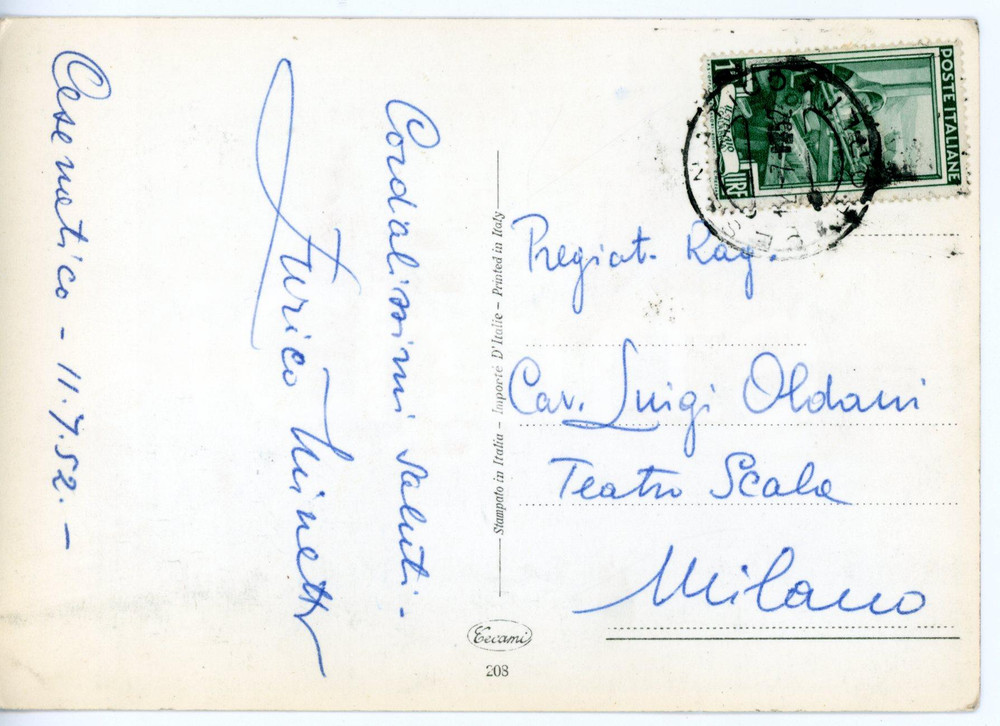 Cesenatico - 11.7.52. -
Cordialissimi saluti -
Enrico Minetti
Stampato in Italia - Importé D'Italie - Printed in Italy
Cecami
208
POSTE ITALIANE
LIRE
Pregiat. Rag.
Cav. Luigi Oldani
Teatro Scala
Milano